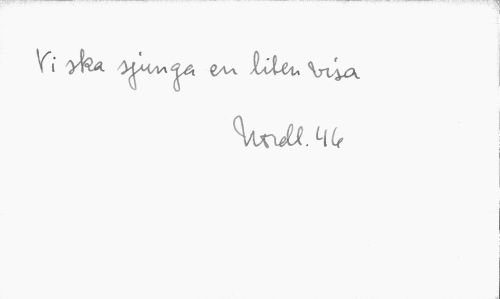 Vi ska sjunga en liten visa
Nordl. 46